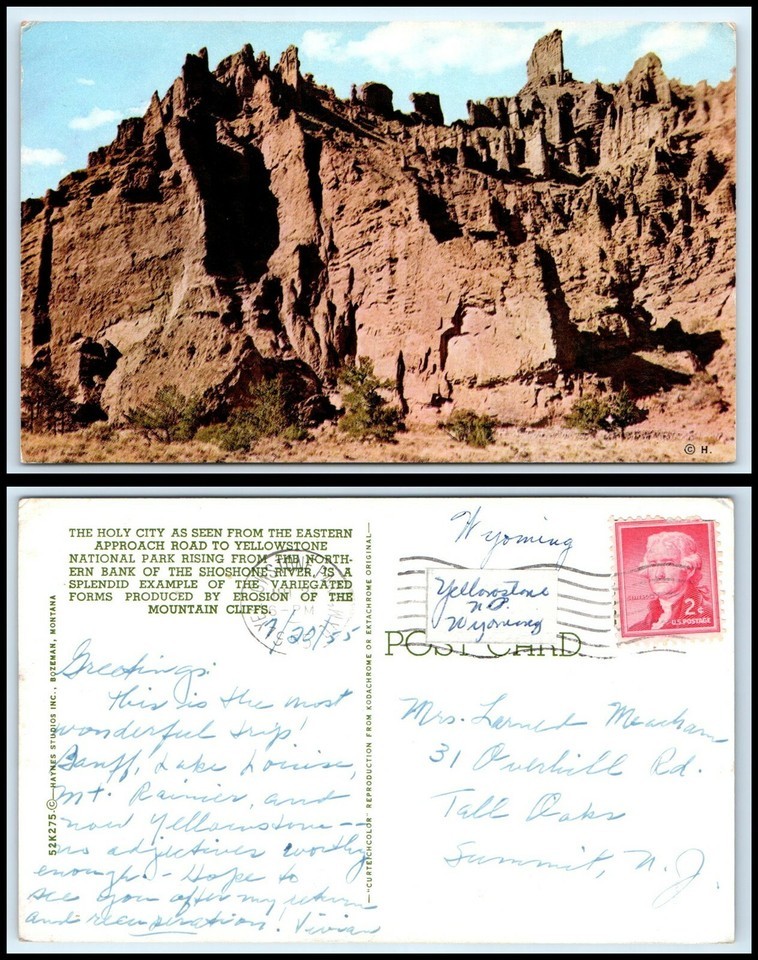 © H.
THE HOLY CITY AS SEEN FROM THE EASTERN
APPROACH ROAD TO YELLOWSTONE
NATIONAL PARK RISING FROM THE NORTH-
ERN BANK OF THE SHOSHONE RIVER, IS A
SPLENDID EXAMPLE OF THE VARIEGATED
FORMS PRODUCED BY EROSION OF THE
MOUNTAIN CLIFFS.
7/20/55
Greetings:
This is the most
wonderful trip!
Banff, Lake Louise,
Mt. Rainier, and
now Yellowstone--
no adjectives worthy
enough - Hope to
see you after my return
and recuperation! Vivian
52K275 © — HAYNES STUDIOS INC., BOZEMAN, MONTANA
—"CURTEICHCOLOR" REPRODUCTION FROM KODACHROME OR EKTACHROME ORIGINAL—
Wyoming
Yellowstone
N.P.
Wyoming
POST CARD
2¢
U.S. POSTAGE
Mrs. Larned Meacham
31 Overhill Rd.
Tall Oaks
Summit, N.J.